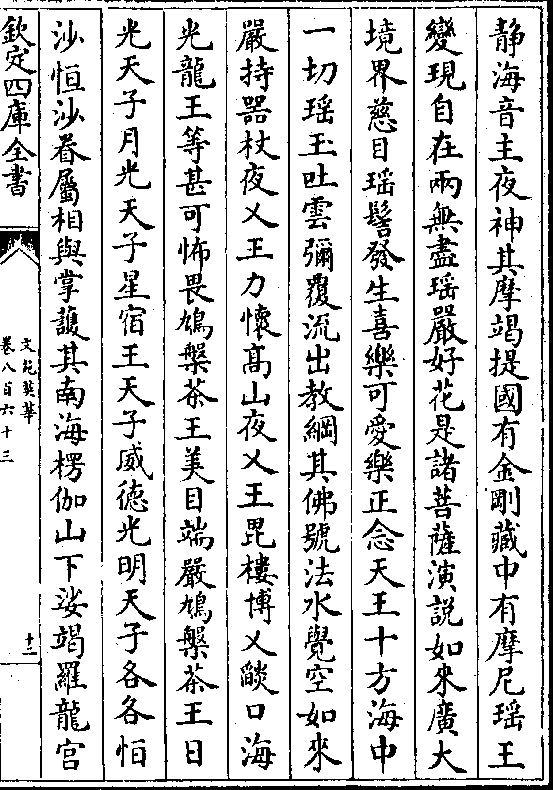 静海音主夜神其摩竭提國有金剛藏中有摩尼瑶王
變現自在兩無盡瑶嚴好花是諸菩薩演說如來廣大
境界慈目瑶髻發生喜樂可愛樂正念天王十方海中
一切瑶玉吐雲彌覆流出教綱其佛號法水覺空如來
嚴持器杖夜乂王力懷髙山夜乂王毘樓博乂燄口海
光龍王等甚可怖畏鳩槃茶王美目端嚴鳩槃茶王日
光天子月光天子星宿王天子威徳光明天子各各怕
沙恒沙眷屬相與掌䕶其南海楞伽山下娑竭羅龍宫
欽定四庫全書
文苑英華
卷八百六十三
十二